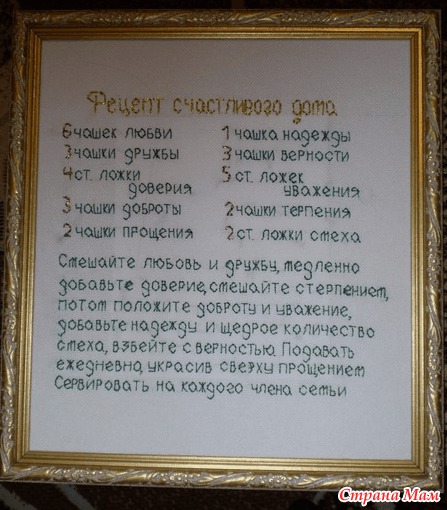 Рецепт счастливого дома
6 чашек любви 1 чашка надежды
3 чашки дружбы 3 чашки верности
4 ст. ложки доверия 5 ст. ложек уважения
3 чашки доброты 2 чашки терпения
2 чашки прощения 2 ст. ложки смеха
Смешайте любовь и дружбу, медленно
добавьте доверие, смешайте с терпением,
потом положите доброту и уважение,
добавьте надежду и щедрое количество
смеха, взбейте с верностью. Подавать
ежедневно, украсив сверху прощением
Сервировать на каждого члена семьи
Страна Мам